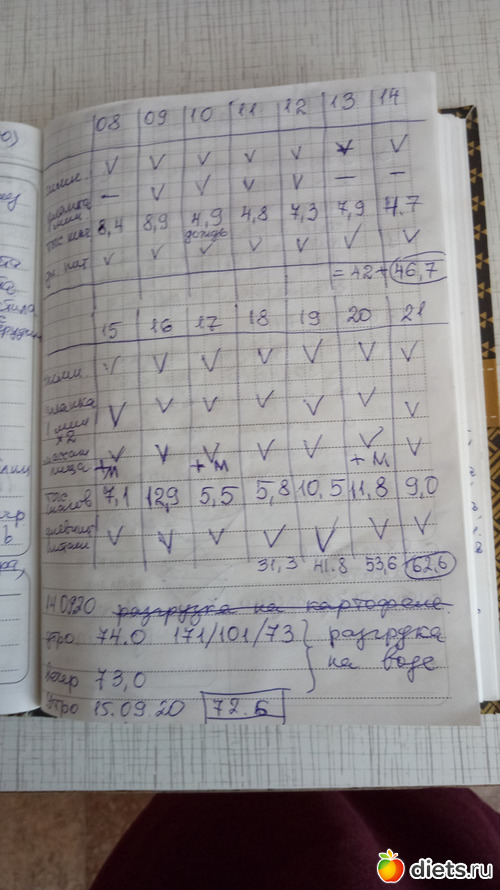 08 09 10 11 12 13 14
V V V V V V V
— V V V V — —
планка
1 мин
8,4 8,9 4,9 4,8 7,3 7,9 4.7
тыс шаг
дождь
V V V V V V V
= 42 + 46,7
15 16 17 18 19 20 21
V V V V V V V
планка
1 мин
x2
V V V V V V V
массаж
лица
V V V V V V V
+м +м +м
тыс
шагов
7,1 12,9 5,5 5,8 10,5 11,8 9,0
V V V V V V V
31,3 41.8 53,6 62.6
14 09 20 разгрузка на картофеле
утро 74.0 171/101/73 разгрузка
на воде
вечер 73,0
Утро 15.09.20 72.6
diets.ru